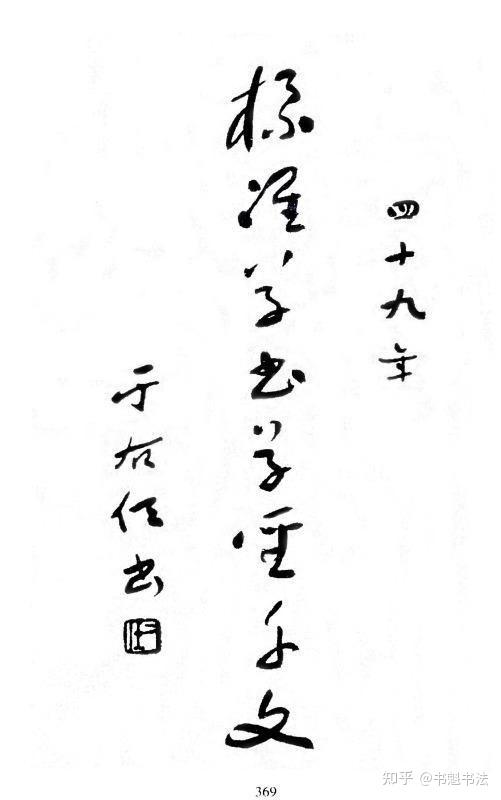 四十九年
標準草書草聖千文
于右任書
369
知乎 @书魁书法